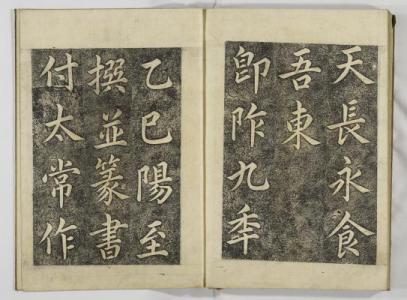 天長永食
吾東
卽阼九秊
乙巳陽至
撰並篆書
付太常作